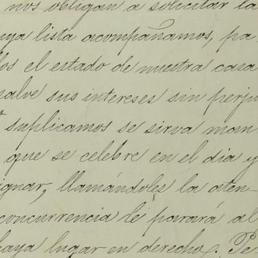 nos obligan a solicitar la
uya lista acompañamos, pa
los el estado de nuestra casa
salve sus intereses sin perju
suplicamos se sirva man
que se celebre en el dia y
ignar, llamándoles la aten
concurrencia le parará el
haya lugar en derecho. Pe